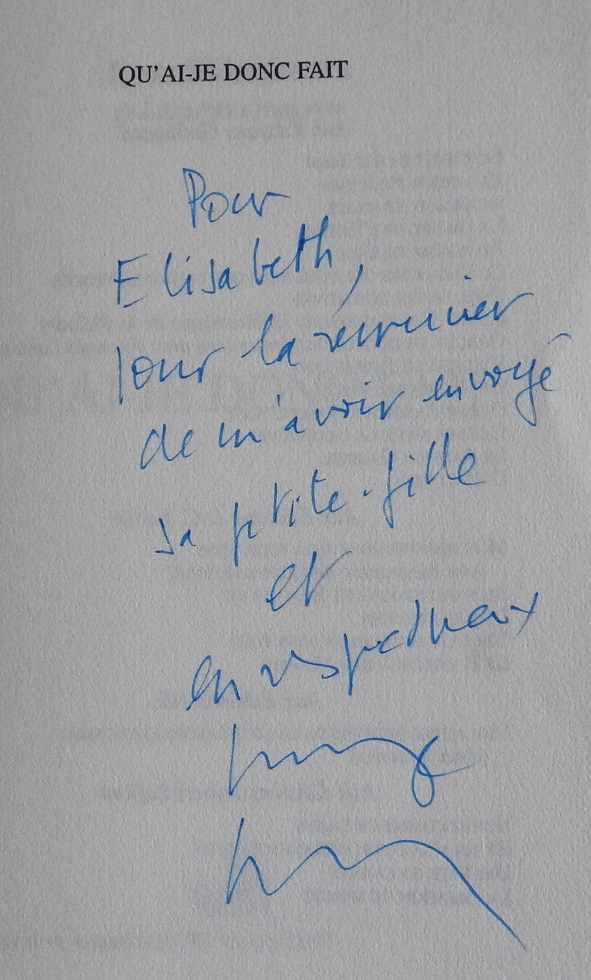 QU'AI-JE DONC FAIT
Pour
Elisabeth,
pour la remercier
de m'avoir envoyé
sa petite-fille
et
en respectueux
hommage